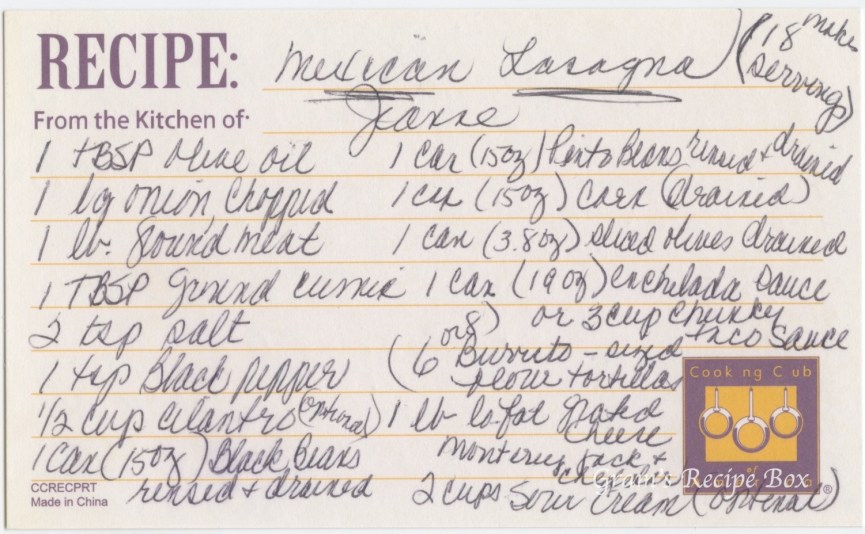 RECIPE: Mexican Lasagna (makes 18 servings)
From the Kitchen of Jeanne
1 TBSP Olive oil
1 lg onion, Chopped
1 lb. ground meat
1 TBSP ground cumin
2 tsp salt
1 tsp Black pepper
1/2 cup cilantro (optional)
1 can (15oz) Black Beans
rinsed + drained
1 can (15oz) Pinto Beans rinsed + drained
1 can (15oz) Corn (drained)
1 can (3.8oz) sliced olives drained
1 can (19oz) enchelada Sauce
or 3 cup chunky
taco Sauce
(6 or 8) Burrito-sized
flour tortillas
1 lb lo-fat grated
cheese
Monterey Jack +
2 cups Sour Cream (optional)
CCRECPRT
Made in China
Cooking Club
of
Gran's Recipe Box
®